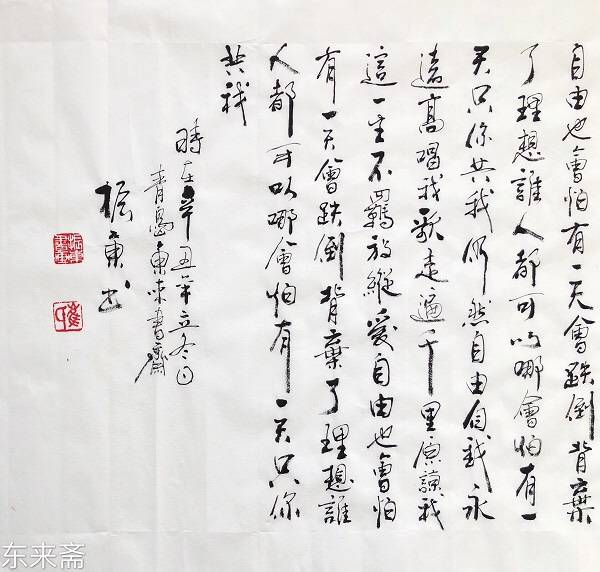 自由也會怕有一天會跌倒背棄
了理想誰人都可以哪會怕有一
天只你共我仍然自由自我永
遠高唱我歌走遍千里原諒我
這一生不羈放縱愛自由也會怕
有一天會跌倒背棄了理想誰
人都可以哪會怕有一天只你
共我
時在辛丑年立冬日
青島東來書齋
振東书
东来斋